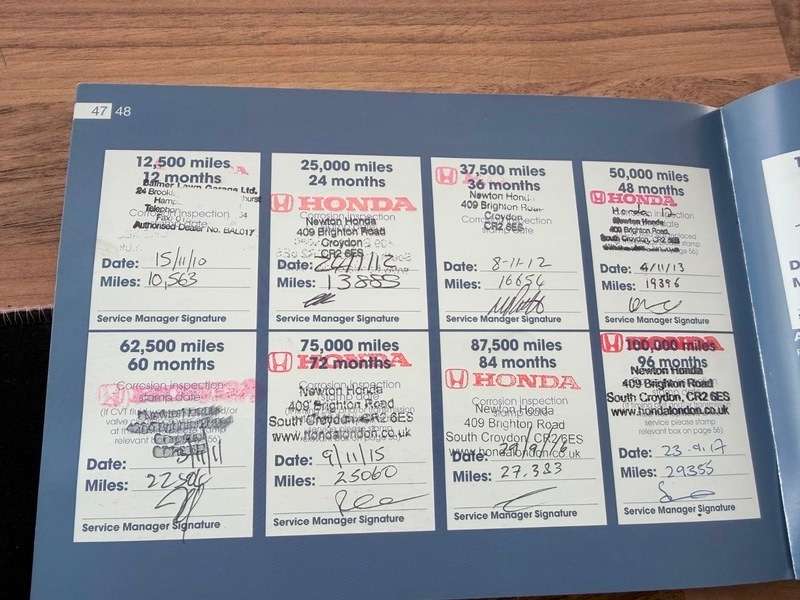 47 48
12,500 miles
12 months
Balmer Lawn Garage Ltd.
Corrosion Inspection
Authorised Dealer No. BAL017
Date: 15/11/10
Miles: 10,563
Service Manager Signature
25,000 miles
24 months
HONDA
Corrosion Inspection
Newton Honda
409 Brighton Road
Croydon
CR2 6ES
Date:
Miles: 13885
Service Manager Signature
37,500 miles
36 months
Newton Honda
409 Brighton Road
Croydon
CR2 6ES
Date: 8-11-12
Miles: 16654
Service Manager Signature
50,000 miles
48 months
HONDA
Newton Honda
409 Brighton Road,
South Croydon, CR2 6ES
Date: 4/11/13
Miles: 19396
Service Manager Signature
62,500 miles
60 months
Corrosion Inspection
stamp date
Date:
Miles:
Service Manager Signature
75,000 miles
72 months
HONDA
Corrosion Inspection
Newton Honda
409 Brighton Road
South Croydon, CR2 6ES
www.hondalondon.co.uk
Date: 9/11/15
Miles: 25060
Service Manager Signature
87,500 miles
84 months
HONDA
Corrosion Inspection
Newton Honda
409 Brighton Road
South Croydon, CR2 6ES
www.hondalondon.co.uk
Date:
Miles: 27,383
Service Manager Signature
100,000 miles
96 months
HONDA
Newton Honda
409 Brighton Road
South Croydon, CR2 6ES
www.hondalondon.co.uk
service please stamp
relevant box on page 56)
Date: 23.9.17
Miles: 29355
Service Manager Signature